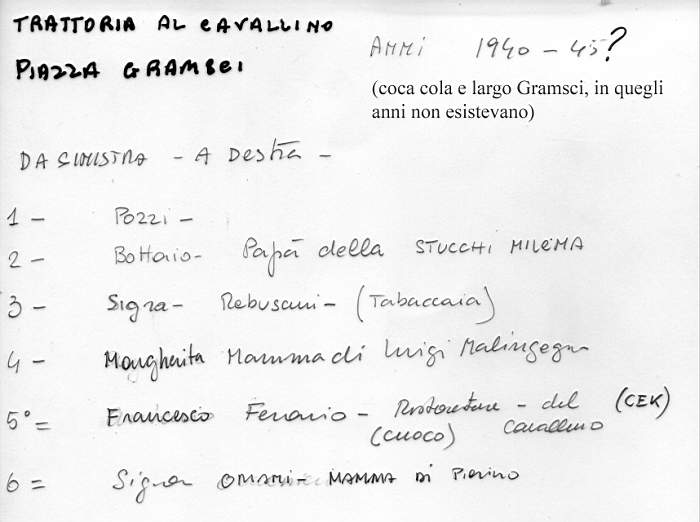 TRATTORIA AL CAVALLINO
PIAZZA GRAMSCI
ANNI 1940 - 45?
(coca cola e largo Gramsci, in quegli
anni non esistevano)
DA SINISTRA - A Destra -
1 - Pozzi -
2 - Bottaio - Papà della STUCCHI MILEMA
3 - Sigra - Rebuscini - (Tabaccaia)
4 - Margherita Mamma di Luigi Malingegn
5° = Francesco Ferrario - Ristoratore - del (CEK)
(CUOCO) Cavallino
6 = Signora OMARI - MAMMA DI Pierino